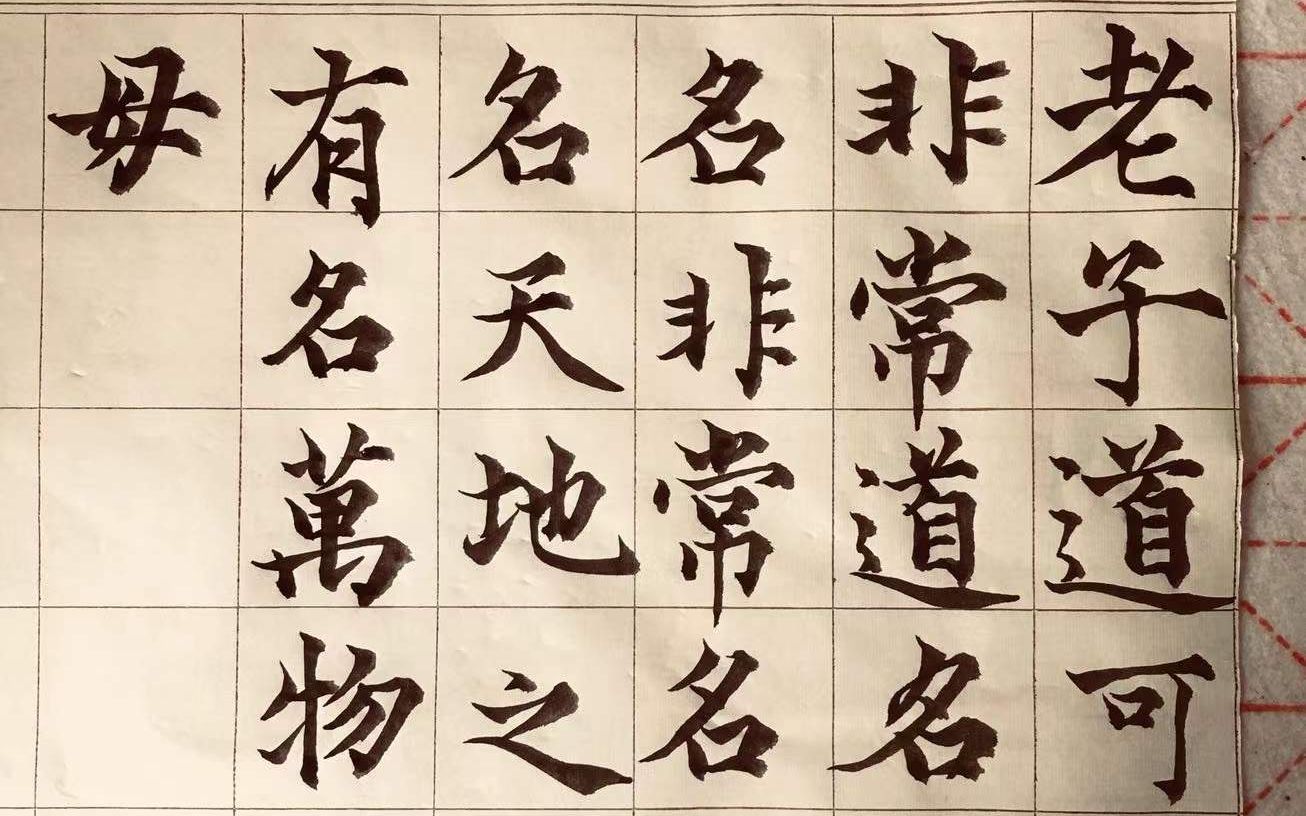 老子道可
非常道名
名非常名
名天地之
有名萬物
毋